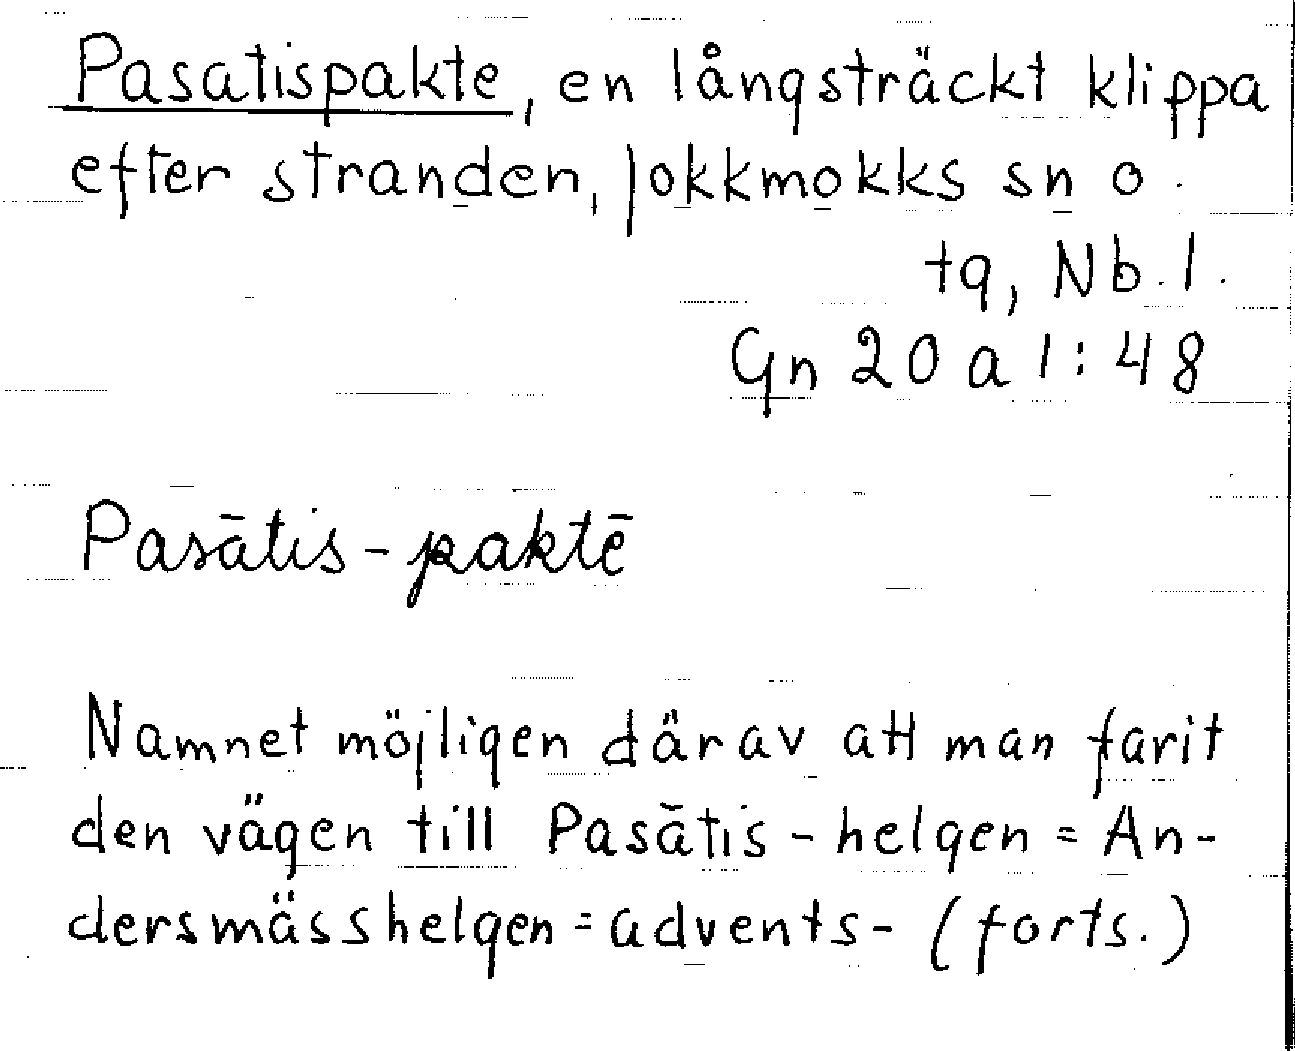 Pasatispakte, en långsträckt klippa
efter stranden, Jokkmokks sn o.
tg, Nb. l.
Gn 20 a 1:48
Pasātis-paktē
Namnet möjligen därav att man farit
den vägen till Pasātis-helgen = An-
dersmässhelgen = advents- (forts.)